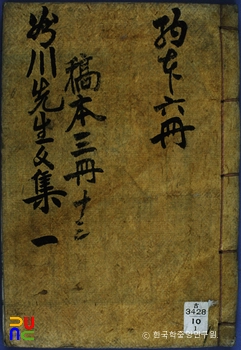 共六冊
稿本三冊 十二
川先生文集 一
古
3428
10
1
ⓒ 한국학중앙연구원